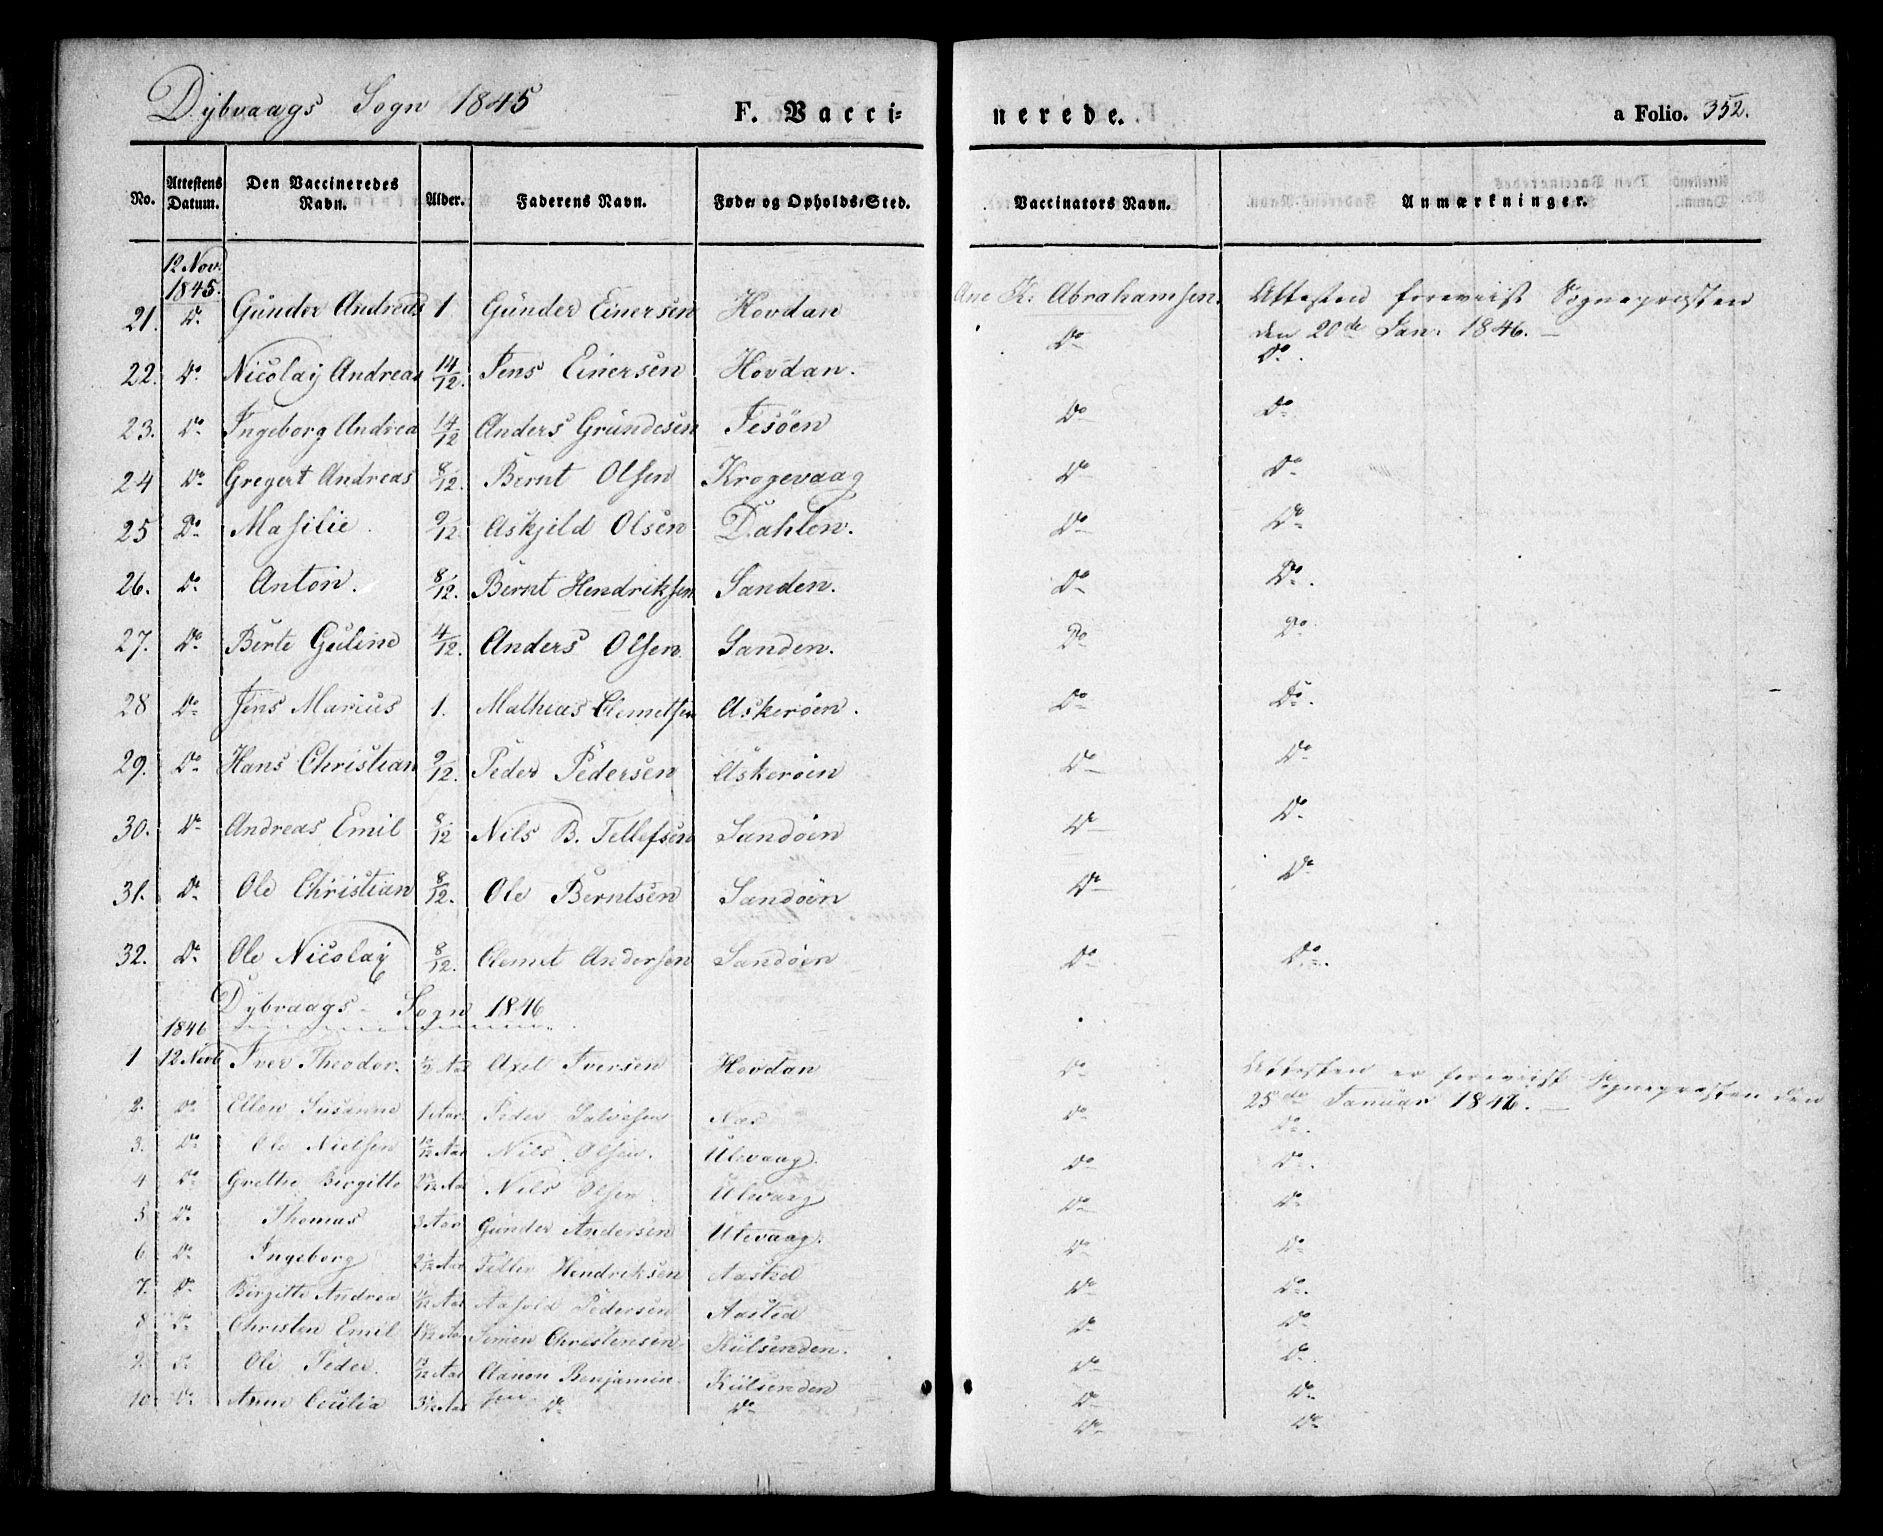 Dybvaags Sogn 1845 F. Vacci- nerede. a Folio. 352.
No. Attestens Datum. Den Vaccineredes Navn. Alder. Faderens Navn. Føde- og Opholds-Sted. Vaccinators Navn. Anmærkninger.
12 Nov.
1845.
21. Do Gunder Andreas 1 Gunder Einersen Hovdan Ane K. Abrahamsen. Attesten foreviist Sognepræsten
den 20de Jan. 1846. –
Do Do
22. Do Nicolay Andreas 14/12. Jens Einersen Hovdan.
23. Do Ingeborg Andrea 14/12 Anders Grundesen Fesöen Do Do
24 Do Gregert Andreas 8/12. Bernt Olsen Krogevaag Do Do
25 Do Masilie. 9/12. Askjeld Olsen Dahlen. Do Do
26. Do Anton. 8/12. Bernt Hendriksen Sanden. Do Do.
27. Do Berte Guline 4/12. Anders Olsen. Sanden. Do Do
28 Do Jens Marius 1. Mathias Clemetsen Askeröen. Do Do.
29. Do Hans Christian 9/12. Peder Pedersen Askeröen Do Do
30. Do Andreas Emil 8/12 Nils B. Tellefsen Sandöen Do Do.
31. Do Ole Christian 8/12. Ole Berntsen Sandöen Do Do
32. Do Ole Nicolay 8/12. Clemet Andersen Sandöen Do Do.
Dybvaags- Sogn 1846
1846
1 12 Novb Iver Theodor. Aar Axel Iversen Hovdan Do Attesten er foreviist Sognepræsten den
25de Januar 1846. –
2. Do Ellen Susanne 1 Aar. Peder Salvesen Næs Do Do.
3. Do Ole Nielsen Aar Nils Olsen. Ulevaag. Do Do.
4 Do Grethe Birgitte Aar Nils Olsen. Ulevaag Do Do
5 Do Thomas 3 Aar Gunder Andersen Ulevaag. Do Do
6 Do Ingeborg Aar Hendriksen Aasted Do Do.
7. Do Birgitte Andrea Aar Pedersen Aasted Do Do
8 Do Christen Emil Aar Simon Christensen Kulsenden. Do Do.
9. Do Ole Peder. Aar Benjamin- Kulsenden Do Do
10 Do Anne Cecilia Aar sen Do Do Do Do